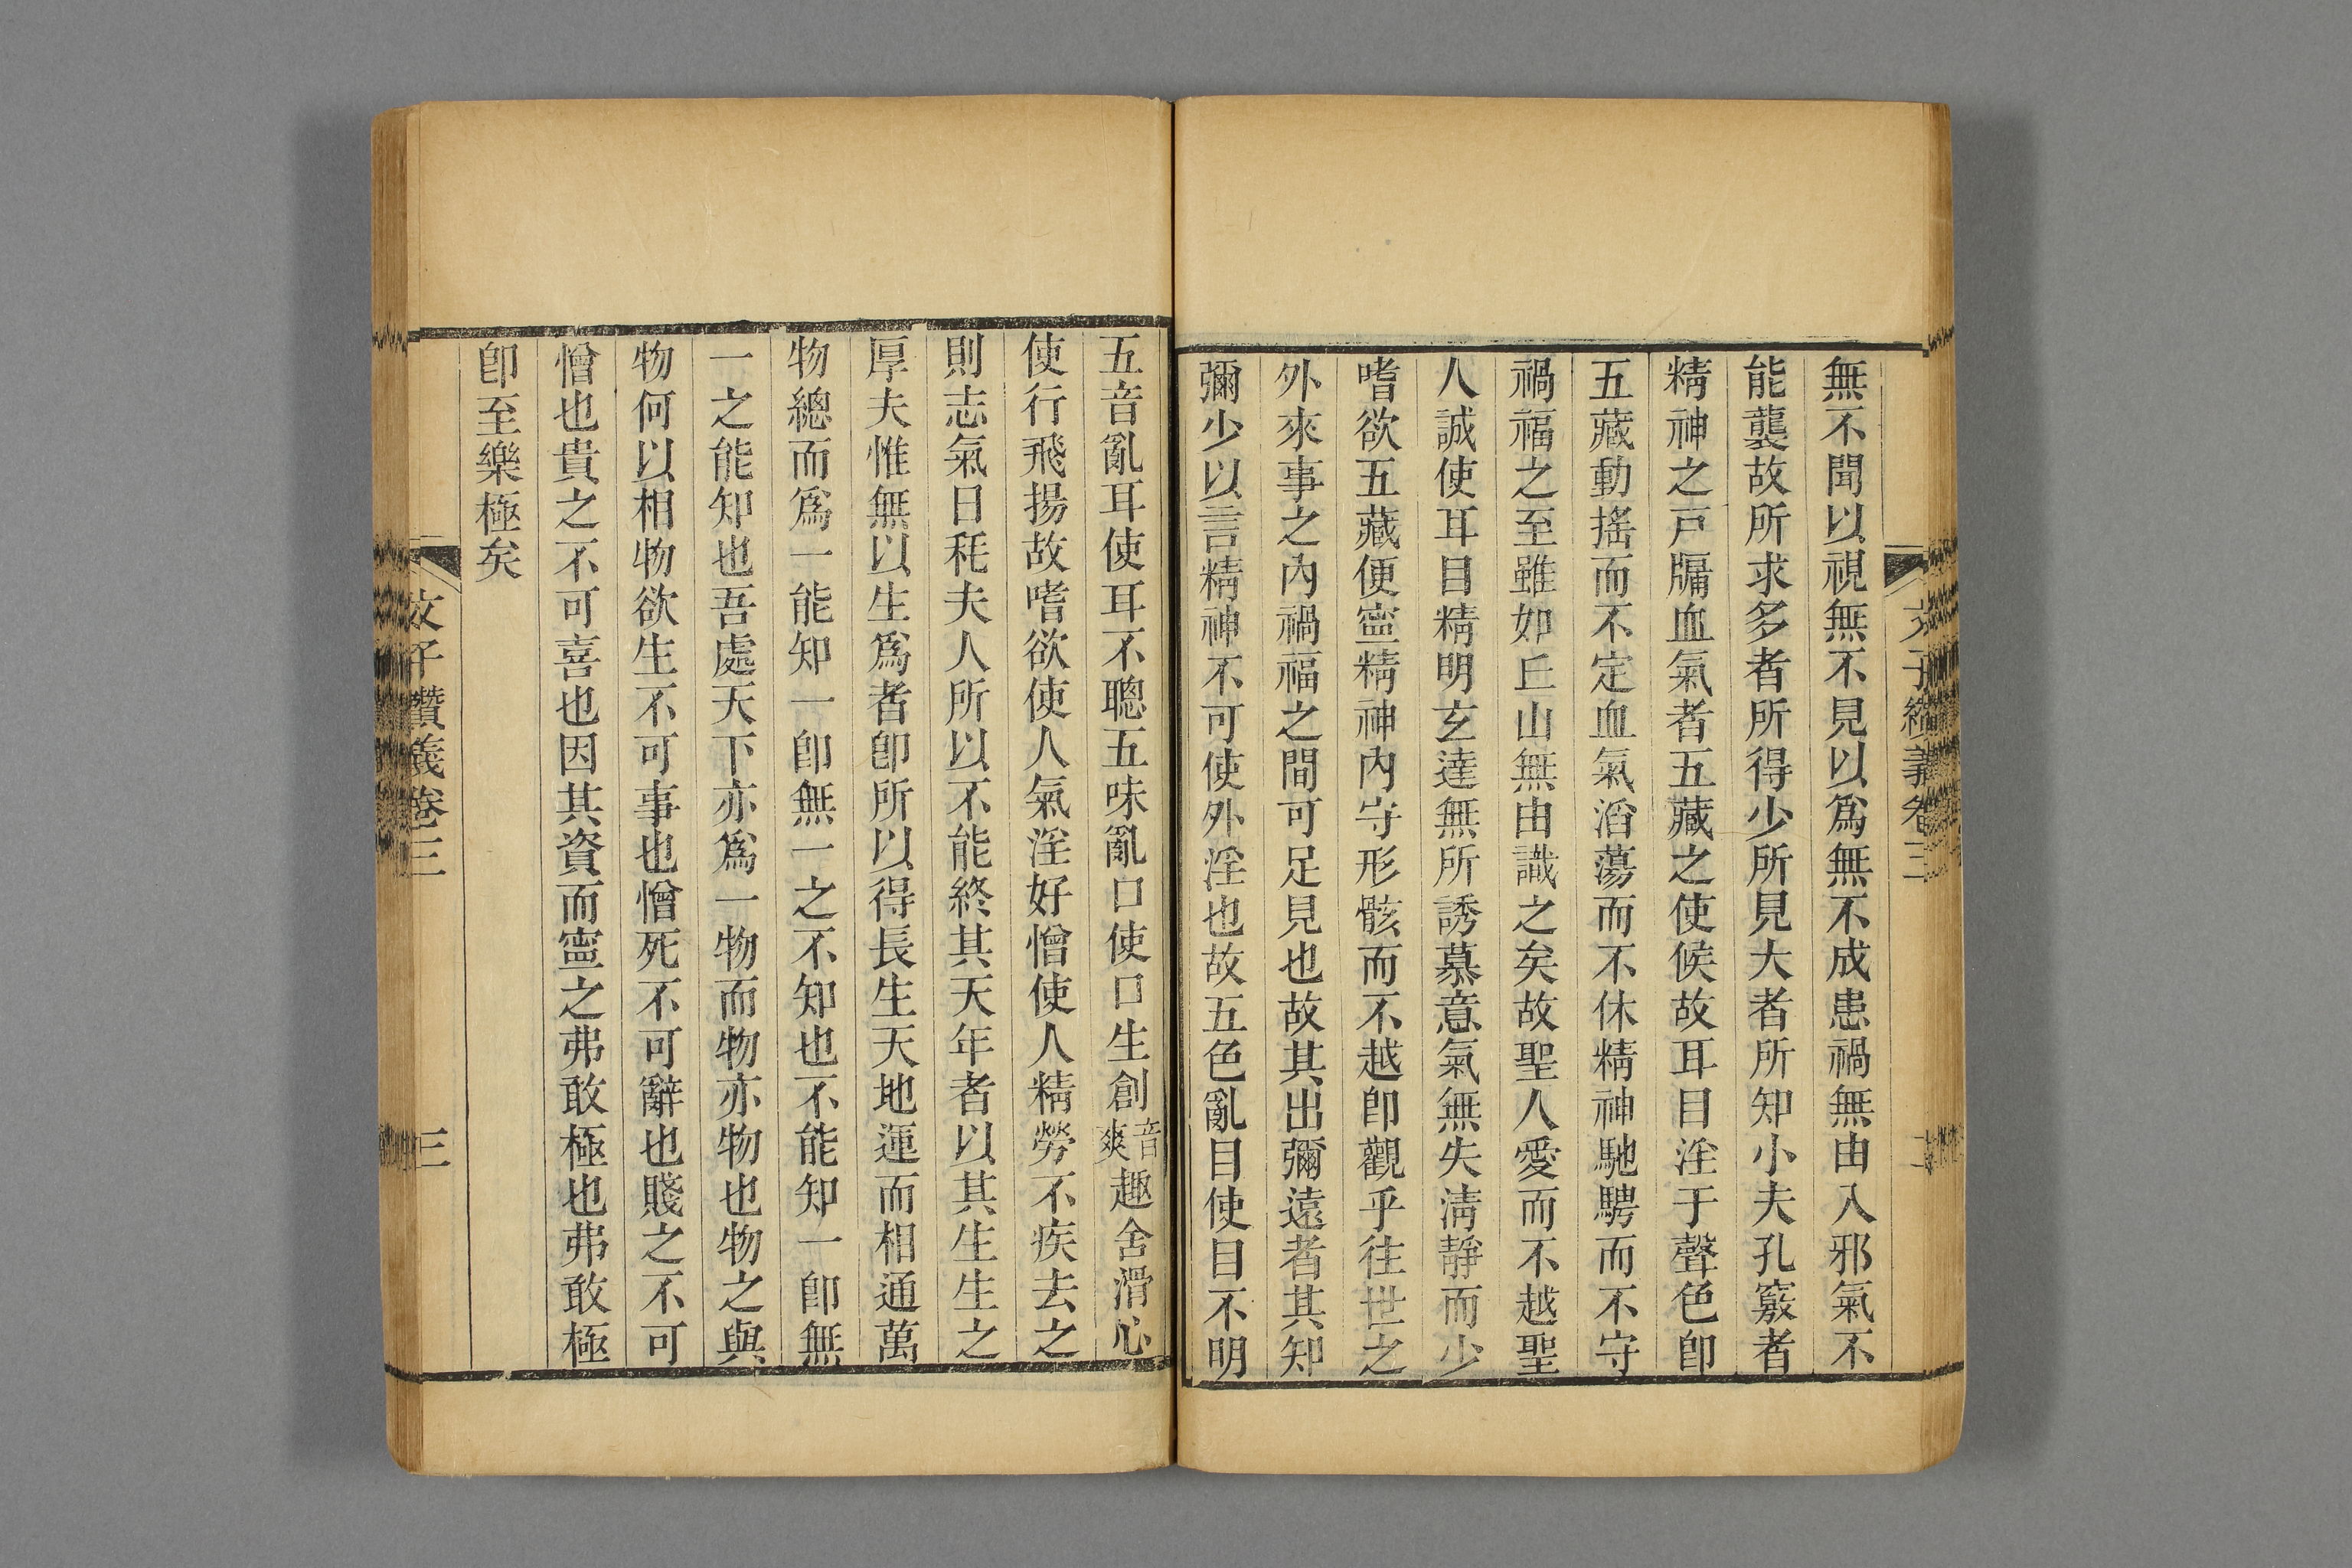 文子纘義卷三
二
無不聞以視無不見以爲無不成患禍無由入邪氣不
能襲故所求多者所得少所見大者所知小夫孔竅者
精神之戸牖血氣者五藏之使候故耳目淫于聲色卽
五藏動搖而不定血氣滔蕩而不休精神馳騁而不守
禍福之至雖如丘山無由識之矣故聖人愛而不越聖
人誠使耳目精明玄達無所誘慕意氣無失淸靜而少
嗜欲五藏便寧精神內守形骸而不越卽觀乎往世之
外來事之內禍福之間可足見也故其出彌遠者其知
彌少以言精神不可使外淫也故五色亂目使目不明
五音亂耳使耳不聰五味亂口使口生創音爽趣舍滑心
使行飛揚故嗜欲使人氣淫好憎使人精勞不疾去之
則志氣日秏夫人所以不能終其天年者以其生生之
厚夫惟無以生爲者卽所以得長生天地運而相通萬
物總而爲一能知一卽無一之不知也不能知一卽無
一之能知也吾處天下亦爲一物而物亦物也物之與
物何以相物欲生不可事也憎死不可辭也賤之不可
憎也貴之不可喜也因其資而寧之弗敢極也弗敢極
卽至樂極矣
文子纘義卷三
三